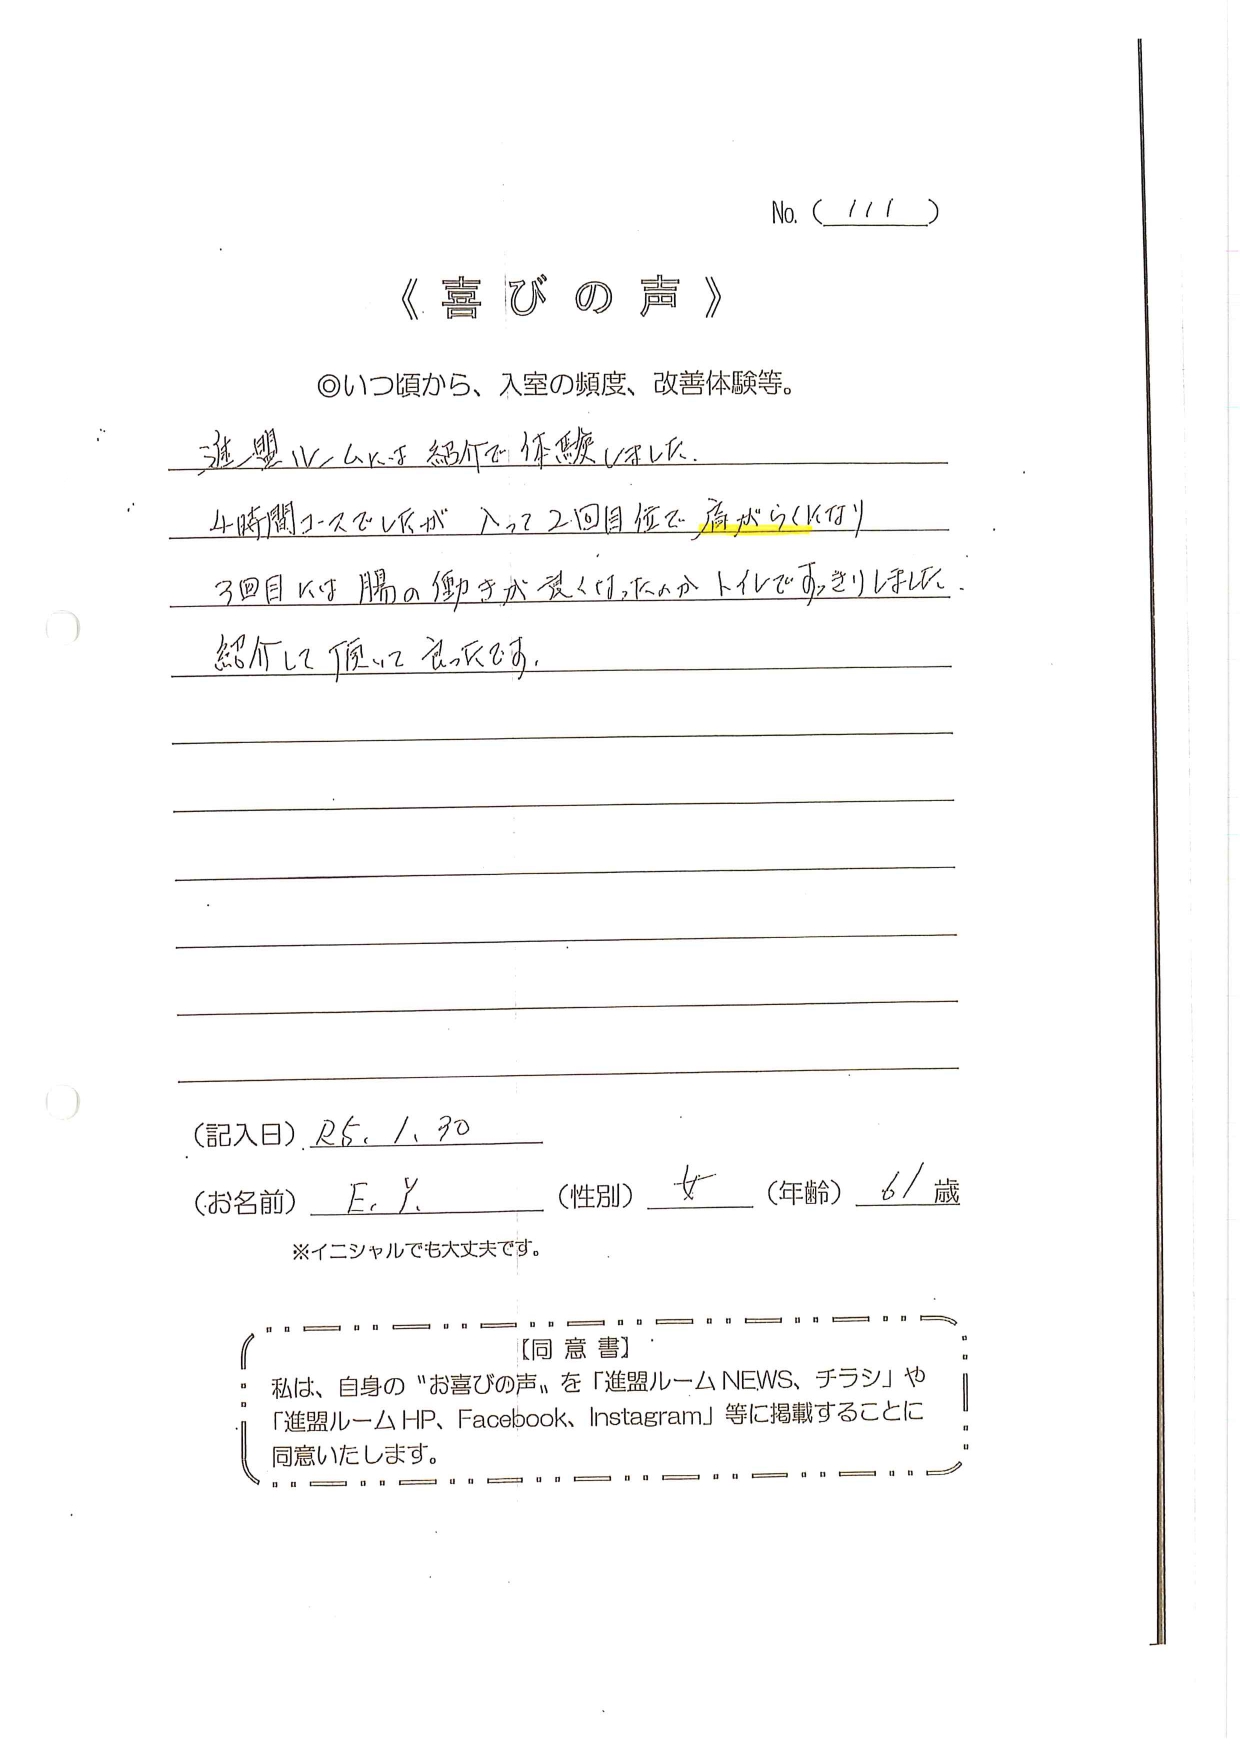 No. ( 111 )
《 喜 び の 声 》
◎いつ頃から、入室の頻度、改善体験等。
進盟ルームには 紹介で 体験しました.
4時間コースでしたが 入って 2回目位で 肩がらくになり
3回目には 腸の働きが良くなったのか トイレですっきりしました.
紹介して頂いて良ったです.
(記入日) R5. 1. 30
(お名前) E. Y. (性別) 女 (年齢) 61 歳
※イニシャルでも大丈夫です。
【同 意 書】
私は、自身の〝お喜びの声〟を「進盟ルーム NEWS、チラシ」や
「進盟ルーム HP、Facebook、Instagram」等に掲載することに
同意いたします。